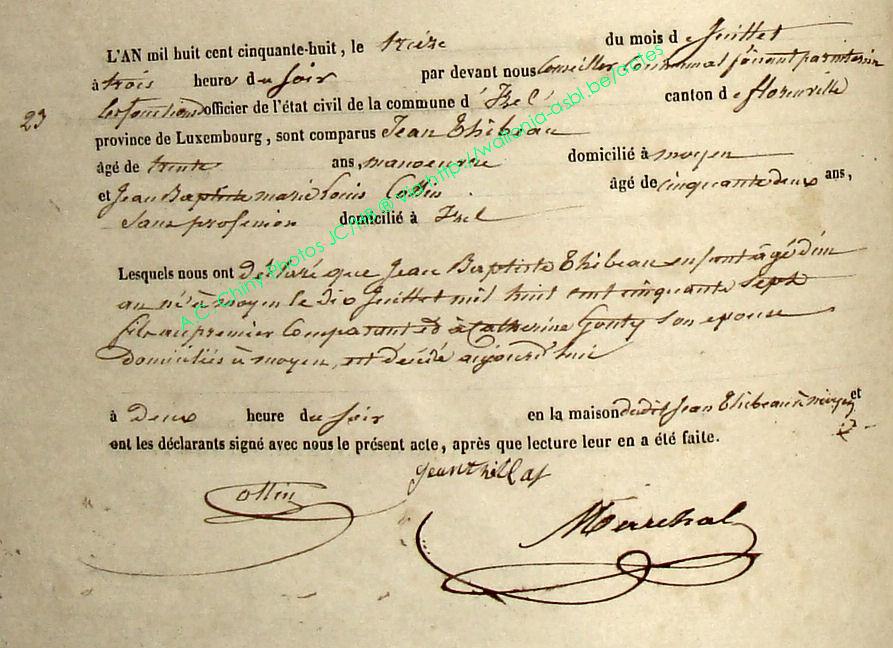 L'AN mil huit cent cinquante-huit, le treize du mois de Juillet
à trois heure du soir par devant nous Conseiller Communal faisant par interim
23 les fonctions d'officier de l'état civil de la commune d'Izel canton de florenville
province de Luxembourg, sont comparus Jean Thibeau
âgé de trente ans, manoeuvre domicilié à moyen
et Jean Baptiste marie Louis Collin âgé de cinquante deux ans,
sans profession domicilié à Izel
Lesquels nous ont déclaré que Jean Baptiste Thibeau enfant âgé d'un
an né à moyen le dix Juillet mil huit cent cinquante sept
fils au premier Comparant et à Catherine Gonty son epouse
domiciliés à moyen, est décédé aujourd'hui
à deux heure du soir en la maison dudit Jean Thibeau à moyen et
ont les déclarants signé avec nous le présent acte, après que lecture leur en a été faite.
Collin
Marechal
A.C. Chiny Photos JC/HB ® via http://wallonia-asbl.be/actes